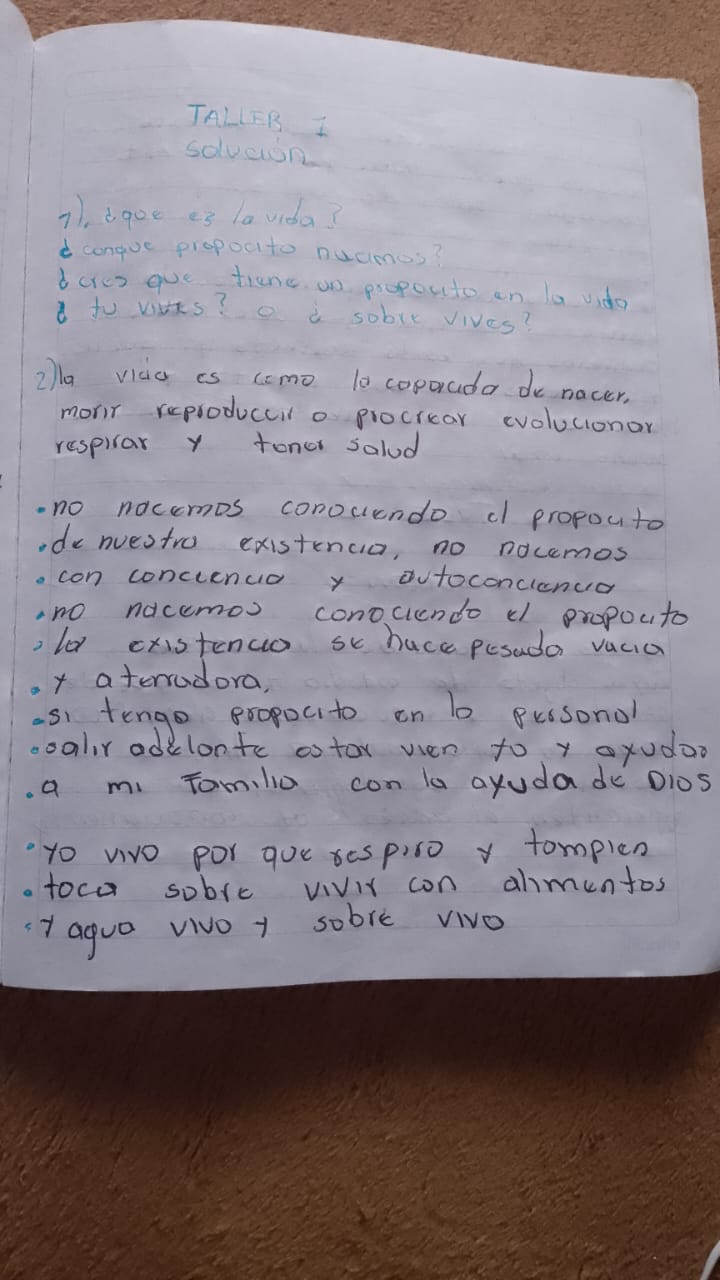 TALLER 1
Solución
1). ¿que es la vida?
¿conque propocito nacimos?
¿cres que tiene un propocito en la vida
¿ tu vives? o ¿ sobre vives?
2) la vida es como la capacida de nacer,
morir reproduccir o procrear evolucionar
respirar y tener salud
•no nacemos conociendo el propocito
•de nuestra existencia, no nacemos
•con conciencia y autoconciencia
•no nacemos conociendo el propocito
•la existencia se hace pesada vacia
•y aterradora,
•si tengo propocito en lo personal
•salir adelante estar vien yo y ayudar
•a mi familia con la ayuda de Dios
•yo vivo por que respiro y tompien
•toca sobre vivir con alimentos
•y agua vivo y sobre vivo